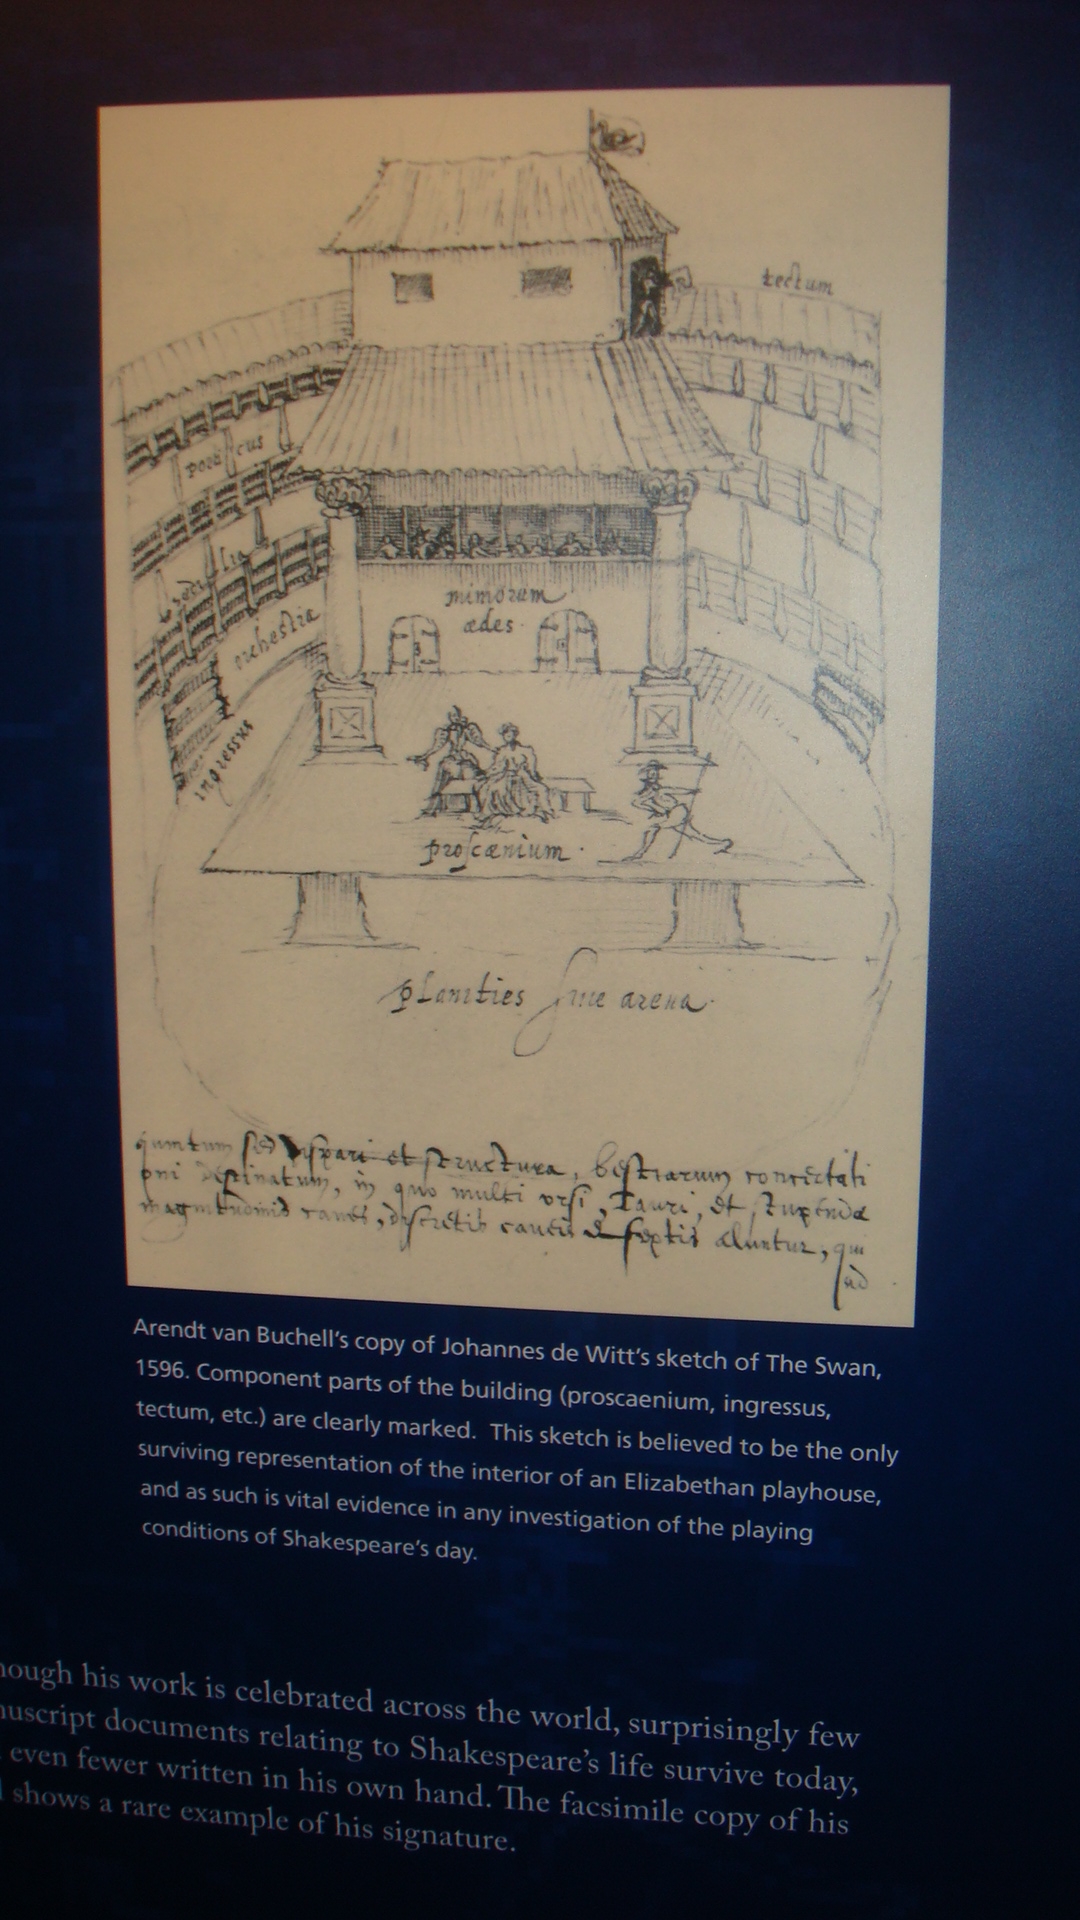 tectum
porticus
sedilia
orchestra
mimorum
ædes.
ingressus
proscænium.
planities sive arena.
quintum sed dispari et structura, bestiarum concertati
oni destinatum, in quo multi ursi, Tauri, et stupendæ
magnitudinis canes, discretis caveis & septis aluntur, qui
ad
Arendt van Buchell's copy of Johannes de Witt's sketch of The Swan,
1596. Component parts of the building (proscaenium, ingressus,
tectum, etc.) are clearly marked. This sketch is believed to be the only
surviving representation of the interior of an Elizabethan playhouse,
and as such is vital evidence in any investigation of the playing
conditions of Shakespeare's day.
hough his work is celebrated across the world, surprisingly few
nuscript documents relating to Shakespeare's life survive today,
even fewer written in his own hand. The facsimile copy of his
shows a rare example of his signature.